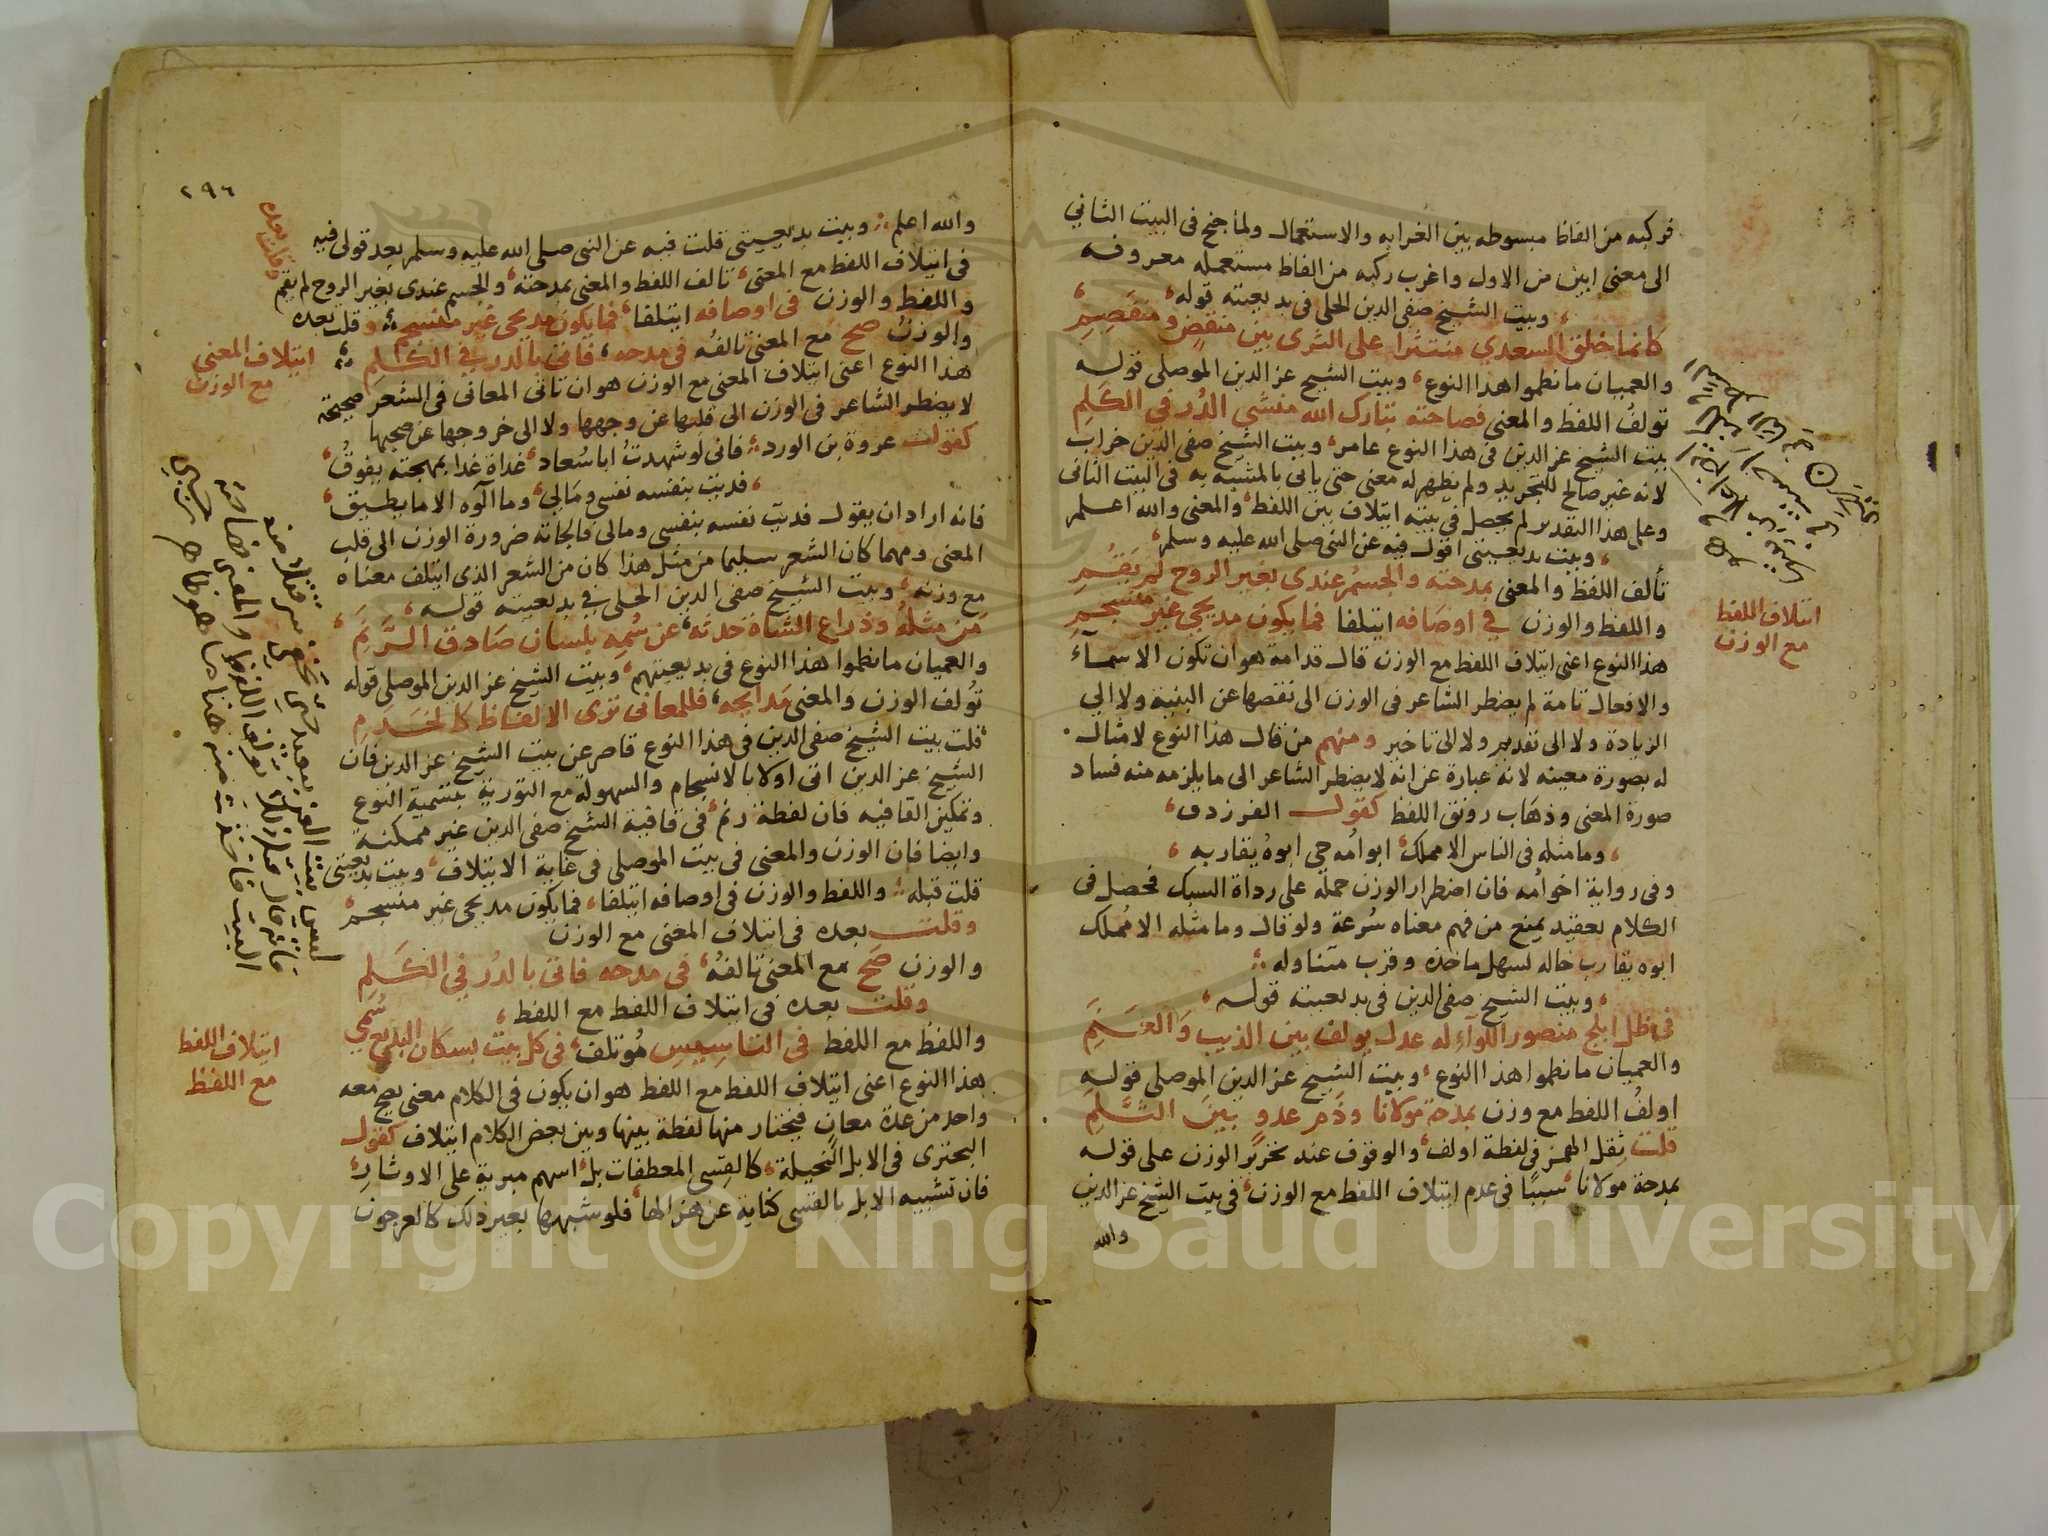 فركبه من الفاظ مبسوطه بين الغرابه والاستعمال ولما جنح فى البيت الثاني
الى معنى ابين من الاول واغرب ركبه من الفاظ مستعمله معروفه
وبيت الشيخ صفى الدين الحلى فى بديعيته قوله
كانما حلق السعدي منتثرا على الثرى بين منقض ومنقصم
والعميان ما نظموا هذا النوع وبيت الشيخ عز الدين الموصلى قوله
تولف اللفظ والمعنى فصاحته تبارك الله منشى الدر في الكلم
بيت الشيخ عز الدين فى هذا النوع عامر وبيت الشيخ صفى الدين خراب
لانه غير صالح للتجريد ولم يظهر له معنى حتى ياتى بالمشبه به فى البيت الثانى
وعلى هذا التقدير لم يحصل في بيته ايتلاف بين اللفظ والمعنى والله اعلم
وبيت بديعيتى اقول فيه عن النبى صلى الله عليه وسلم
تألف اللفظ والمعنى بمدحته والجسم عندى بغير الروح لم يقم
واللفظ والوزن في اوصافه ايتلفا فما يكون مديحي غير منسجم
ايتلاف اللفظ
مع الوزن
هذا النوع اعنى ايتلاف اللفظ مع الوزن قال قدامة هو ان تكون الاسمآء
والافعال تامة لم يضطر الشاعر فى الوزن الى نقصها عن البنيه ولا الي
الزيادة ولا الى تقديم ولا الى تاخير ومنهم من قال هذا النوع لا مثال
له بصورة معينه لانه عبارة عن انه لا يضطر الشاعر الى ما يلزمه منه فساد
صورة المعنى وذهاب رونق اللفظ كقول الفرزدق
وما مثله فى الناس الا مملك ابو امه حي ابوه يقاربه
وفى رواية اخو امه فان اضطرار الوزن حمله على رداة السبك فحصل فى
الكلام تعقيد يمنع من فهم معناه سرعة ولو قال وما مثله الا مملك
ابوه يقارب خاله لسهل ماخذه وقرب متناوله
وبيت الشيخ صفى الدين فى بديعيته قوله
فى ظل ابلج منصور اللوآء له عدل يولف بين الذيب والغنم
والعميان ما نظموا هذا النوع وبيت الشيخ عز الدين الموصلى قوله
اولف اللفظ مع وزن بمدحة مولانا وذم عدو بين الثلم
قلت ثقل الهمز فى لفظة اولف والوقوف عند تحرير الوزن على قوله
بمدحة مولانا سببا فى عدم ايتلاف اللفظ مع الوزن فى بيت الشيخ عز الدين
والله
٢٩٦
والله اعلم وبيت بديعيتى قلت فيه عن النبى صلى الله عليه وسلم بعد قولى فيه
فى ايتلاف اللفظ مع المعنى تالف اللفظ والمعنى بمدحته والجسم عندى بغير الروح لم يقم
وقلت بعده
واللفظ والوزن فى اوصافه ايتلفا فما يكون مديحى غير منسجم وقلت بعده
والوزن صح مع المعنى تالفه فى مدحه فاتى بالدر في الكلم
ايتلاف المعنى
مع الوزن
هذا النوع اعنى ايتلاف المعنى مع الوزن هو ان تاتى المعانى فى الشعر صحيحة
لا يضطر الشاعر فى الوزن الى قلبها عن وجهها ولا الى خروجها عن صحتها
كقول عروة بن الورد فانى لو شهدت ابا سعاد غداة غدا بمهجته يفوق
فديت بنفسه نفسى ومالي وما آلوه الا ما يطيق
فانه اراد ان يقول فديت نفسه بنفسى ومالى فالجاته ضرورة الوزن الى قلب
المعنى ومهما كان الشعر سليما من مثل هذا كان من الشعر الذى ايتلف معناه
مع وزنه وبيت الشيخ صفى الدين الحلى في بديعيته قوله
من مثله وذراع الشاة حدثه عن سمه بلسان صادق الرنم
والعميان ما نظموا هذا النوع فى بديعيتهم وبيت الشيخ عز الدين الموصلى قوله
تولف الوزن والمعنى مدايحه فللمعانى ترى الالفاظ كالخدم
قلت بيت الشيخ صفى الدين فى هذا النوع قاصر عن بيت الشيخ عز الدين فان
الشيخ عز الدين اتى اولا بالانسجام والسهولة مع التورية بتسمية النوع
وتمكين القافيه فان لفظة رنم فى قافية الشيخ صفى الدين غير ممكنة
وايضا فان الوزن والمعنى فى بيت الموصلى فى غاية الايتلاف وبيت بديعيتى
قلت قبله واللفظ والوزن فى اوصافه ايتلفا فما يكون مديحى غير منسجم
وقلت بعده فى ايتلاف المعنى مع الوزن
والوزن صح مع المعنى تالفه فى مدحه فاتى بالدر في الكلم
وقلت بعده فى ايتلاف اللفظ مع اللفظ
واللفظ مع اللفظ فى التاسيس مؤتلف فى كل بيت بسكان البديع سمي
ايتلاف اللفظ
مع اللفظ
هذا النوع اعنى ايتلاف اللفظ مع اللفظ هو ان يكون فى الكلام معنى يصح معه
واحد من عدة معان فيختار منها لفظة بينها وبين بعض الكلام ايتلاف كقول
البحترى فى الابل النحيلة كالقسى المعطفات بل اسهم مبرية على الاوتار
فان تشبيه الابل بالقسى كناية عن هزالها فلو شبهها بغير ذلك كالعرجون
Copyright © King Saud University